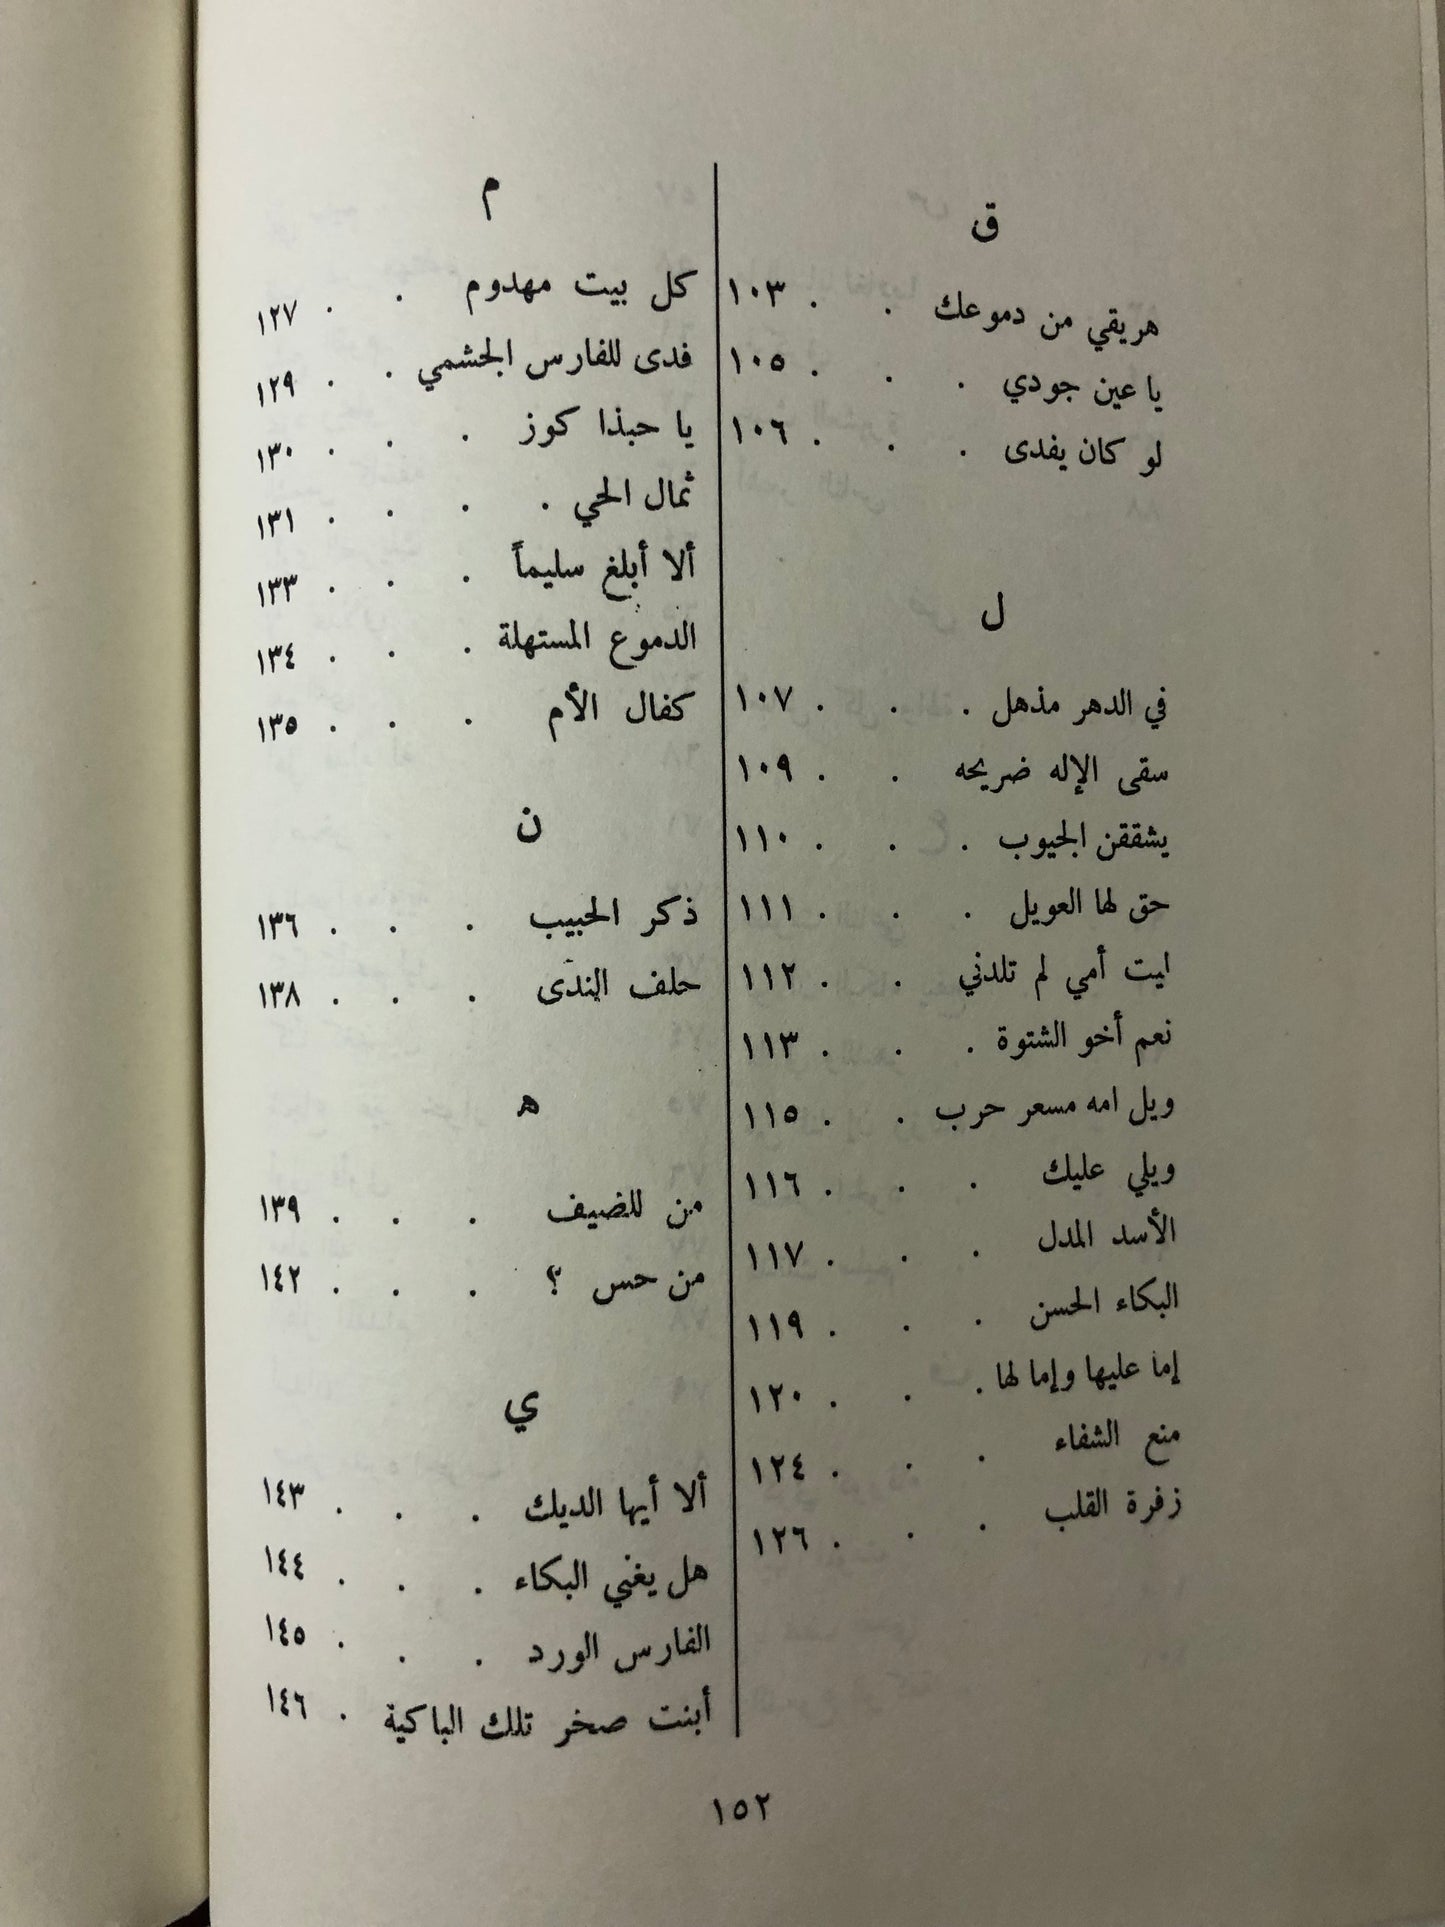 ق
هريقي من دموعك . . ١٠٣
يا عين جودي . . . ١٠٥
لو كان يفدى . . . ١٠٦
ل
في الدهر مذهل . . . ١٠٧
سقى الإله ضريحه . . ١٠٩
يشققن الجيوب . . . ١١٠
حق لها العويل . . . ١١١
ليت أمي لم تلدني . . ١١٢
نعم أخو الشتوة . . . ١١٣
ويل امه مسعر حرب . . ١١٥
ويلي عليك . . . ١١٦
الأسد المدل . . . ١١٧
البكاء الحسن . . . ١١٩
إما عليها وإما لها . . . ١٢٠
منع الشفاء . . . ١٢٤
زفرة القلب . . . ١٢٦
م
كل بيت مهدوم . . ١٢٧
فدى للفارس الجشمي . . ١٢٩
يا حبذا كوز . . . ١٣٠
ثمال الحي . . . . ١٣١
ألا أبلغ سليماً . . . ١٣٣
الدموع المستهلة . . . ١٣٤
كفال الأم . . . ١٣٥
ن
ذكر الحبيب . . . ١٣٦
حلف الندى . . . ١٣٨
ه
من للضيف . . . ١٣٩
من حس ؟ . . . ١٤٢
ي
ألا أيها الديك . . . ١٤٣
هل يغني البكاء . . . ١٤٤
الفارس الورد . . . ١٤٥
أبنت صخر تلك الباكية . ١٤٦
١٥٢